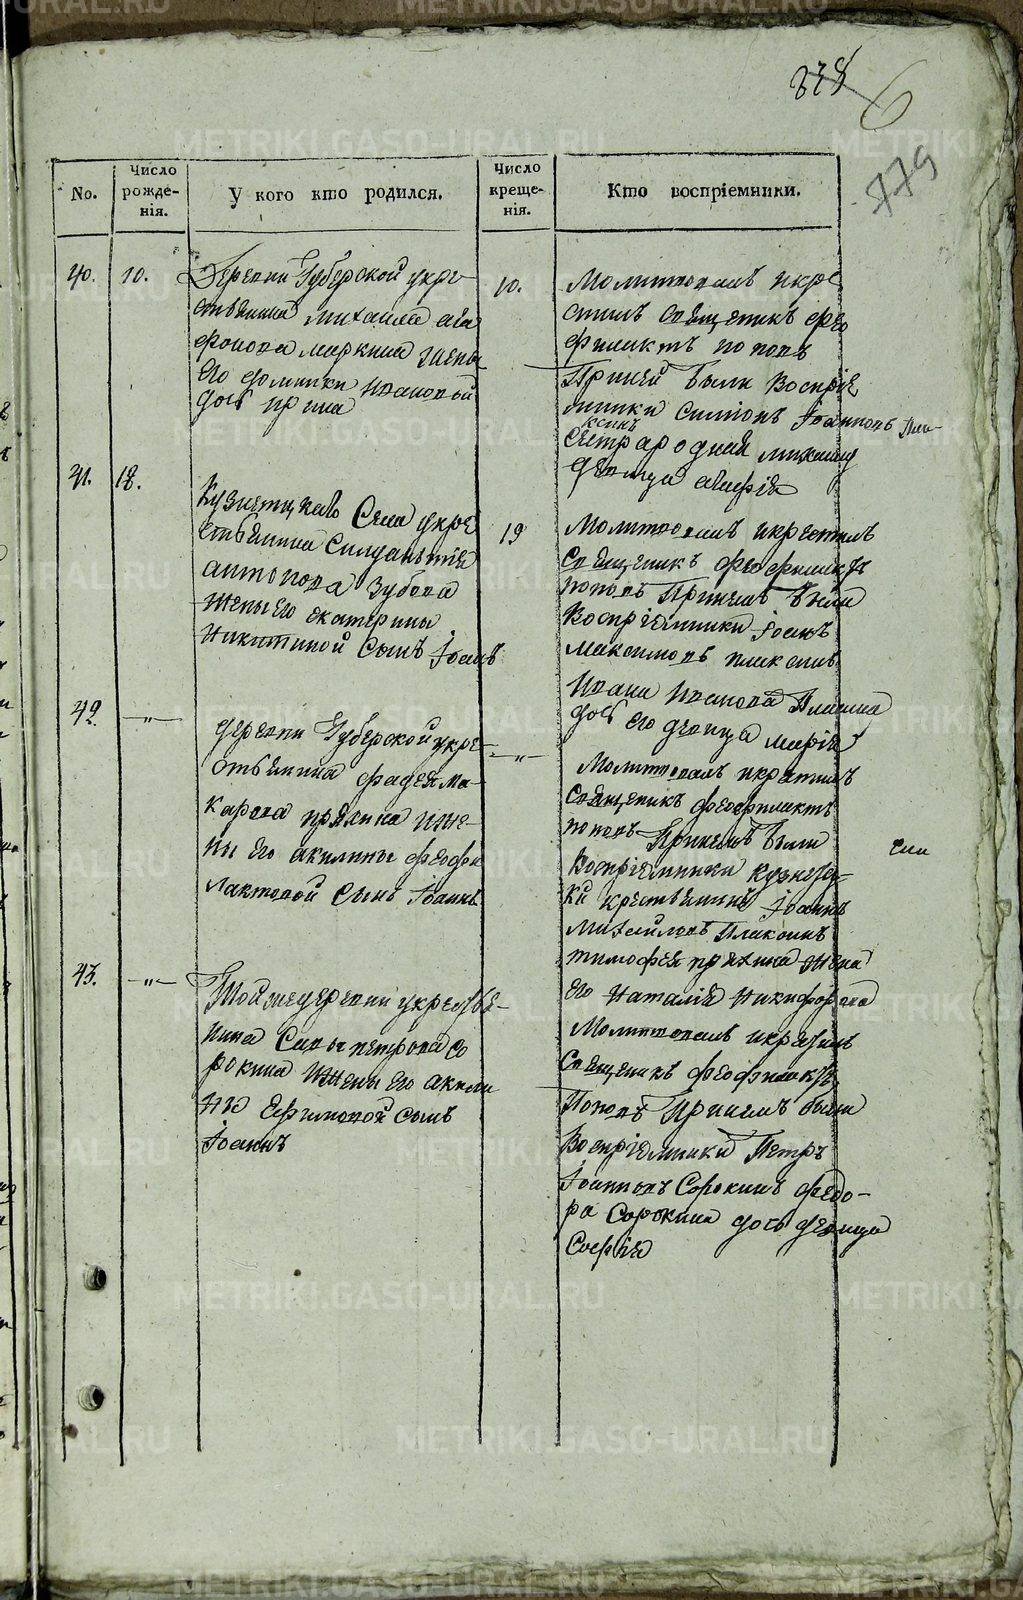 878
6
779
No.
Число рожде-нія.
У кого кто родился.
Число креще-нія.
Кто воспріемники.
40.
10.
Деревни Зуберской у кре
стьянина Михаила ага
фонова маркина жены
Его домники Ивановой
дочь ирина
10.
Молитвовалъ и кре
стилъ священикъ фео
филактъ поповъ
При ней были Воспріе
мники Симіонъ Іоанновъ Пла-
ксинъ
Сестра родная михаилу
девица
41.
18.
Кузнецкаго Села у кре
стьянина
антонова Зубова
жены Его екатерины
Никитиной Сынъ Іоанъ
19
Молитвовалъ и крестилъ
Священикъ феофилактъ
поповъ При немъ были
Воспріемники Іоанъ
максимовъ плаксинъ
Ивана Иванова
дочь его девица марія
42
—"—
деревни Зуберской у кре-
стьянина фадея ма-
карова пряхина и же-
ны Его акилины феофи
лактовой Сынъ Іоаннъ
—"—
Молитвовалъ и крестилъ
Священикъ феофилактъ
поповъ При немъ были
Воспріемники кузнец-
кій крестьянинъ Іоаннъ
Михайловъ Плаксинъ
тимофея пряхина жена
Его Наталія Никифорова
43.
—"—
Той же деревни у крестья-
нина Савы петрова Со
рокина жены Его акили
ны Ефимовой сынъ
Іоаннъ
Молитвовалъ и крестилъ
Священикъ феофилактъ
Поповъ При немъ были
Воспріемники Петръ
Іоанновъ Сорокинъ федо-
ра Сорокина дочь девица
Софія
METRIKI.GASO-URAL.RU